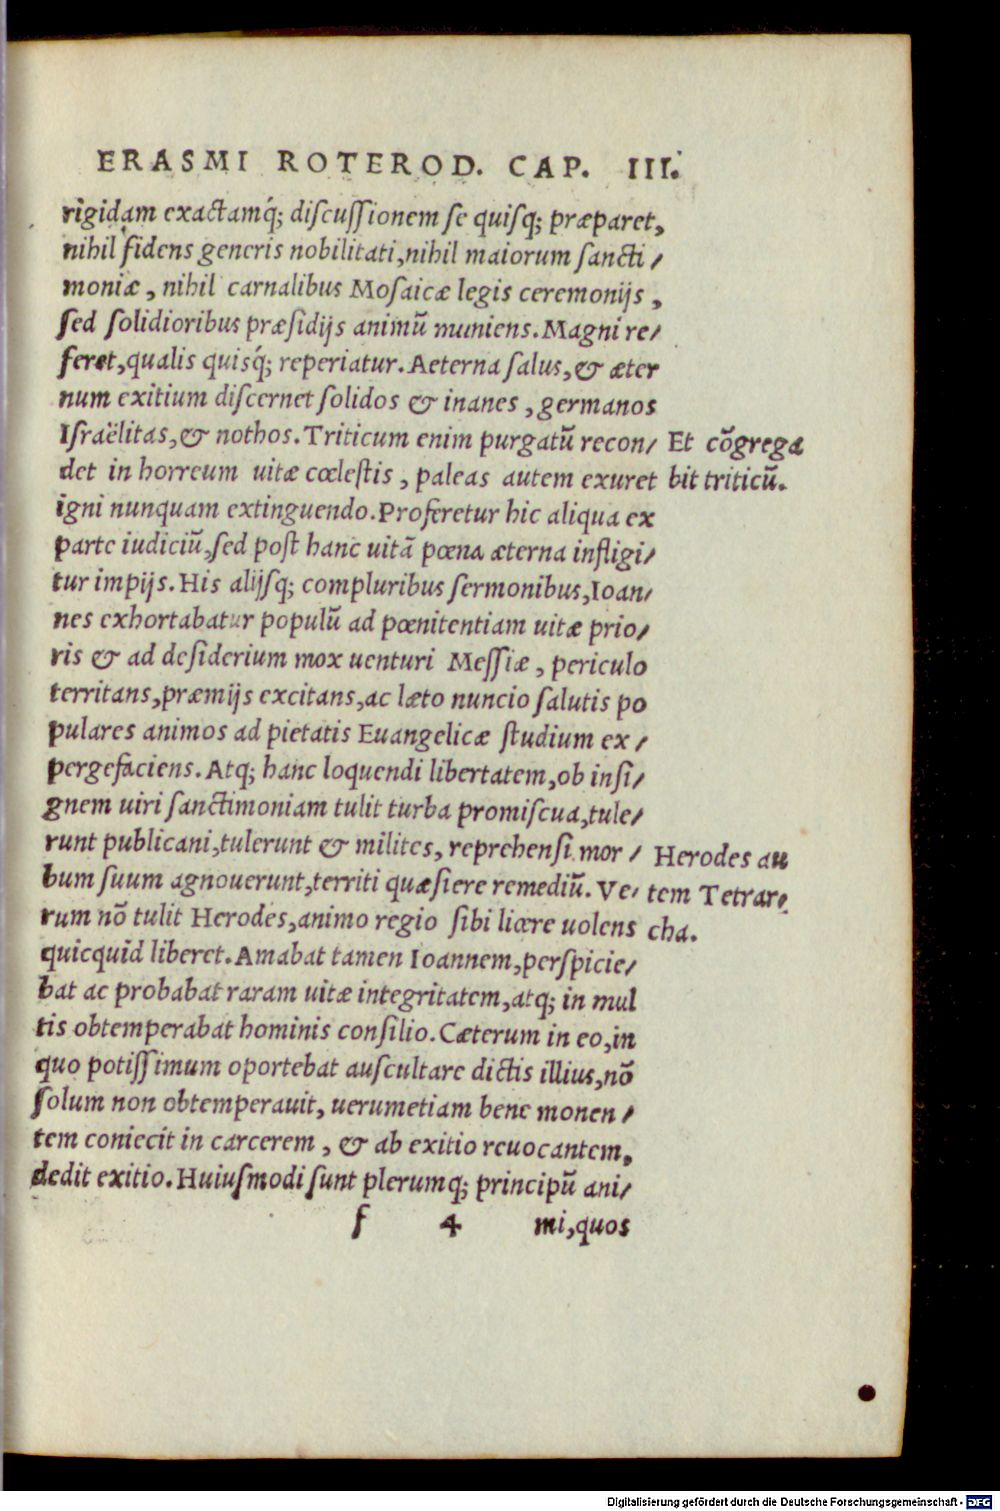 ERASMI ROTEROD. CAP. III.
rigidam exactamq́; discussionem se quisq; præparet,
nihil fidens generis nobilitati, nihil maiorum sancti/
moniæ, nihil carnalibus Mosaicæ legis ceremonijs,
sed solidioribus præsidijs animũ muniens. Magni re/
feret, qualis quisq́; reperiatur. Aeterna salus, & æter
num exitium discernet solidos & inanes, germanos
Israëlitas, & nothos. Triticum enim purgatũ recon/
det in horreum uitæ cœlestis, paleas autem exuret
Et cõgrega
bit triticũ.
igni nunquam extinguendo. Proferetur hic aliqua ex
parte iudiciũ, sed post hanc uitã pœna æterna infligi/
tur impijs. His alijsq; compluribus sermonibus, Ioan/
nes exhortabatur populũ ad pœnitentiam uitæ prio/
ris & ad desiderium mox uenturi Messiæ, periculo
territans, præmijs excitans, ac læto nuncio salutis po
pulares animos ad pietatis Euangelicæ studium ex/
pergefaciens. Atq; hanc loquendi libertatem, ob insi/
gnem uiri sanctimoniam tulit turba promiscua, tule/
runt publicani, tulerunt & milites, reprehensi mor/
bum suum agnouerunt, territi quæsiere remediũ. Ve/
rum nõ tulit Herodes, animo regio sibi licere uolens
Herodes au
tem Tetrar/
cha.
quicquid liberet. Amabat tamen Ioannem, perspicie/
bat ac probabat raram uitæ integritatem, atq; in mul
tis obtemperabat hominis consilio. Cæterum in eo, in
quo potissimum oportebat auscultare dictis illius, nõ
solum non obtemperauit, uerumetiam bene monen/
tem coniecit in carcerem, & ab exitio reuocantem,
dedit exitio. Huiusmodi sunt plerumq; principũ ani/
f 4 mi, quos
Digitalisierung gefördert durch die Deutsche Forschungsgemeinschaft - DFG